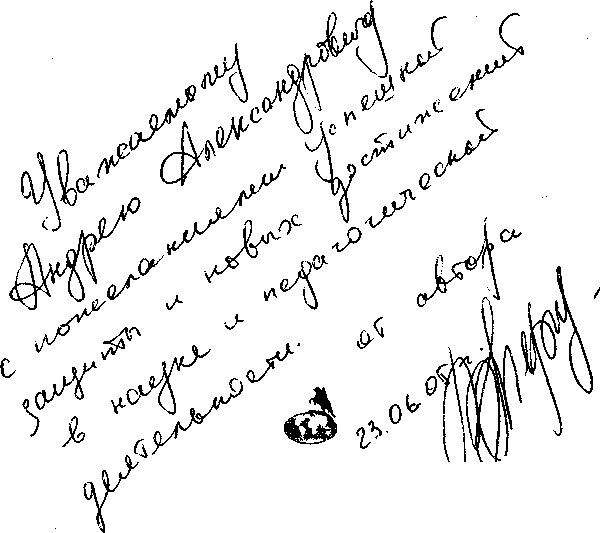 Уважаемому
Андрею Александровичу
с пожеланиями успешной
защиты и новых достижений
в науке и педагогической
деятельности. от автора
23.06.05г.